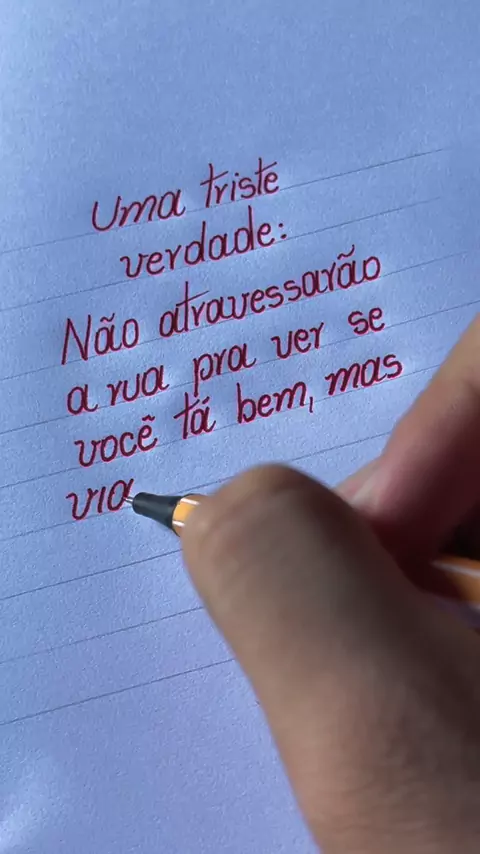 Uma triste
verdade:
Não atravessarão
a rua pra ver se
você tá bem, mas
via